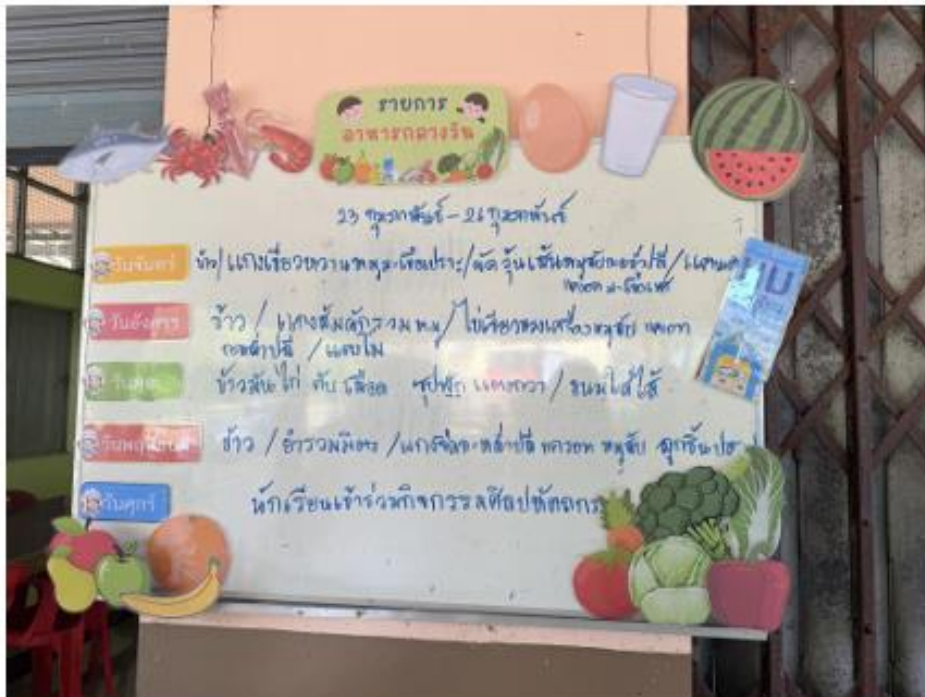 รายการ
อาหารกลางวัน
23 กุมภาพันธ์ - 26 กุมภาพันธ์
วันจันทร์ ข้าว/แกงเขียวหวานหมูมะเขือเปราะ/ผัดวุ้นเส้นหมูสับกะหล่ำปลี/
มะเขือเทศ
นม
วันอังคาร ข้าว / แกงส้มผักรวม / ไข่เจียวทรงเครื่องหมูสับ แครอท
กะหล่ำปลี / แตงโม
วันพุธ ข้าวมันไก่ ตับ เลือด ซุปฟัก แตงกวา / ขนมใส่ไส้
วันพฤหัสบดี ข้าว / ยำรวมมิตร / แกงจืดกะหล่ำปลี แครอท หมูสับ ลูกชิ้น
วันศุกร์ นักเรียนเข้าร่วมกิจกรรมศิลปหัตถกร